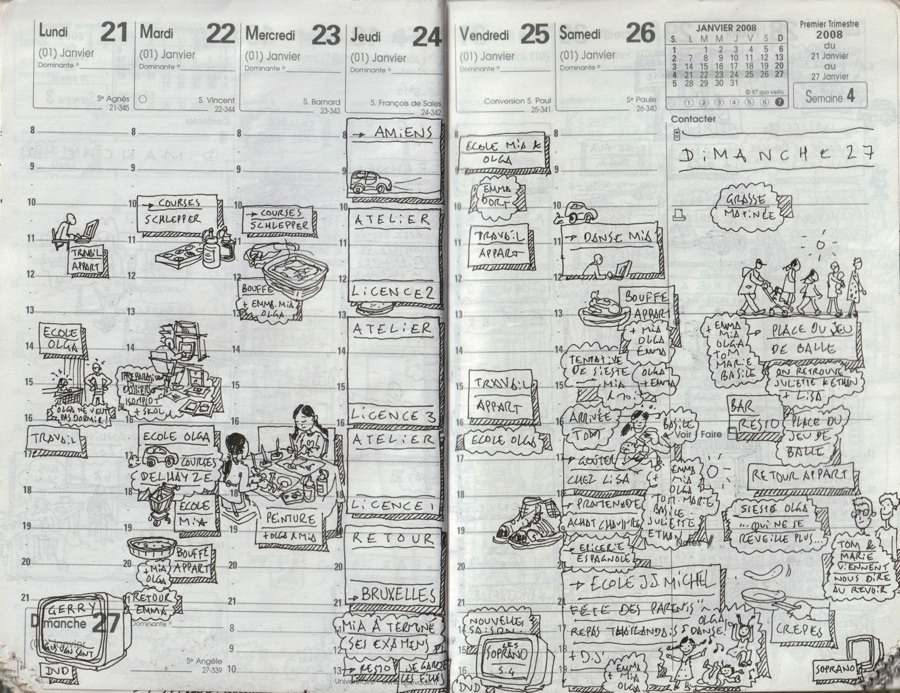 Lundi 21
(01) Janvier
Dominante
Ste Agnès
21-345
11
TRAVAIL
APPART
ECOLE
OLGA
OLGA NE VEUT
PAS DORMIR!
TRAVAIL
GERRY
Dimanche 27
DVD
Mardi 22
(01) Janvier
Dominante
S. Vincent
22-344
→ COURSES
SCHLEPPER
+ SKOL
ECOLE OLGA
COURSES
DELHAYZE
ECOLE
MIA
BOUFFE
APPART
+ MIA
OLGA
RETOUR
EMMA
Dominante
Ste Angèle
27-339
Mercredi 23
(01) Janvier
Dominante
S. Barnard
23-343
→ COURSES
SCHLEPPER
BOUFFE
+ EMMA. MIA
OLGA
PEINTURE
+ OLGA & MIA
Jeudi 24
(01) Janvier
Dominante
S. François de Sales
24-342
→ AMIENS
ATELIER
LICENCE 2
ATELIER
LICENCE 3
ATELIER
LICENCE 1
RETOUR
→ BRUXELLES
MIA A TERMINÉ
SES EXAMENS
→ RESTO
JE GARDE
LES FILLES
Vendredi 25
(01) Janvier
Dominante
Conversion S. Paul
25-341
ECOLE MIA &
OLGA
EMMA
DORT
TRAVAIL
APPART
TRAVAIL
APPART
ECOLE OLGA
NOUVELLE
SAISON
LES
SOPRANO
S.4
Samedi 26
(01) Janvier
Dominante
Ste Paule
26-340
→ DANSE MIA
BOUFFE
APPART
+ MIA
OLGA
EMMA
TENTATIVE
DE SIESTE
MIA
OLGA
+ EMMA
ARRIVÉE
TOM
BASILE
→ GOUTER
CHEZ LISA
+ EMMA
MIA
OLGA
TOM. MARIE
BASILE
JULIETTE
ETHAN
→ PROMENADE
EPICERIE
ESPAGNOLE
→ ECOLE JJ MICHEL
"FÊTE DES PARENTS"
REPAS THAILANDAIS
OLGA
DANSE!
+ D.J.
+ EMMA
MIA
OLGA
JANVIER 2008
S. L M M J V S D
1 1 2 3 4 5 6
2 7 8 9 10 11 12 13
3 14 15 16 17 18 19 20
4 21 22 23 24 25 26 27
5 28 29 30 31
© BT quo vadis
1 2 3 4 5 6 7
Premier Trimestre
2008
du
21 Janvier
au
27 Janvier
Semaine 4
Contacter
DIMANCHE 27
GRASSE
MATINÉE
+ EMMA
MIA
OLGA
TOM
MARIE
BASILE
→ PLACE DU JEU
DE BALLE
ON RETROUVE
JULIETTE & ETHAN
+ LISA
BAR
RESTO
PLACE DU
JEU DE
BALLE
Voir / Faire
RETOUR APPART
SIESTE OLGA
... QUI NE SE
REVEILLE PLUS...
Notes
TOM &
MARIE
VIENNENT
NOUS DIRE
AU REVOIR
CREPES
SOPRANO